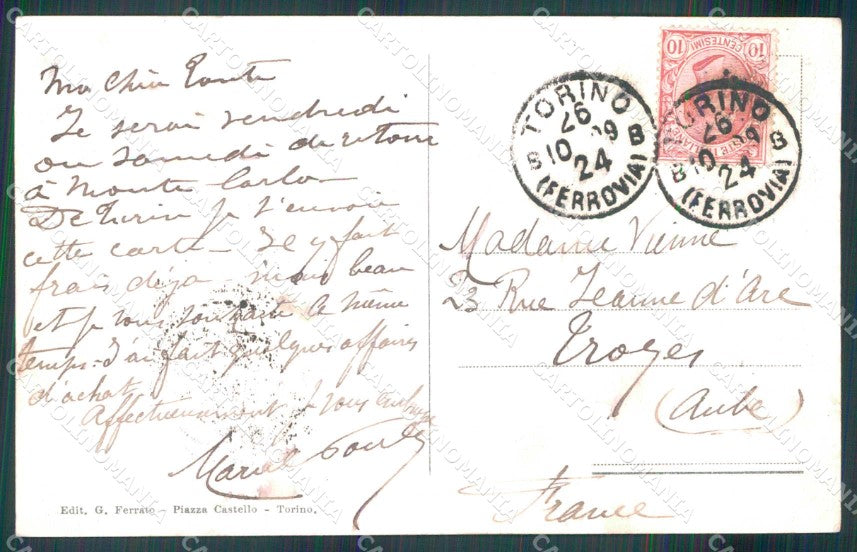 Ma Chère Tante
Je serai vendredi
ou samedi de retour
à Monte Carlo
De Turin je t'envoie
cette carte Il y fait
frais déjà mais beau
et je vous souhaite le même
temps. J'ai fait quelques affaires
d'achat.
Affectueusement je vous embrasse
Marcel
Edit. G. Ferrato - Piazza Castello - Torino.
10 CENTESIMI 10
POSTE ITALIANE
TORINO
26
10 09
24
B B
(FERROVIA)
TORINO
26
10 09
24
B B
(FERROVIA)
Madame Vienne
23 Rue Jeanne d'Arc
Troyes
(Aube)
France
CARTOLINOMANIA